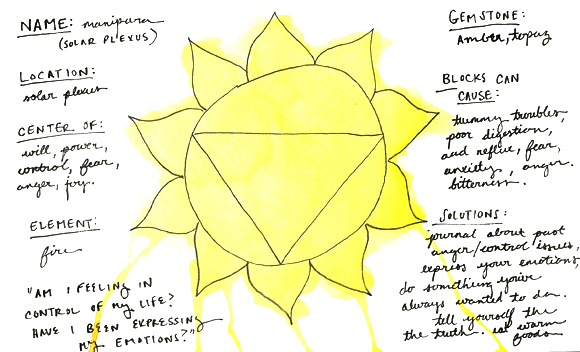 NAME: manipura
(SOLAR PLEXUS)
LOCATION:
solar plexus
CENTER OF:
will, power,
control, fear,
anger, joy.
ELEMENT:
fire
"AM I FEELING IN
CONTROL OF MY LIFE?
HAVE I BEEN EXPRESSING
MY EMOTIONS?"
GEMSTONE:
Amber, topaz
BLOCKS CAN
CAUSE:
tummy troubles,
poor digestion,
acid reflux, fear,
anxiety, anger.
bitterness.
SOLUTIONS:
journal about past
anger/control issues,
express your emotions,
do something you've
always wanted to do.
tell yourself the
the truth. eat warm
foods